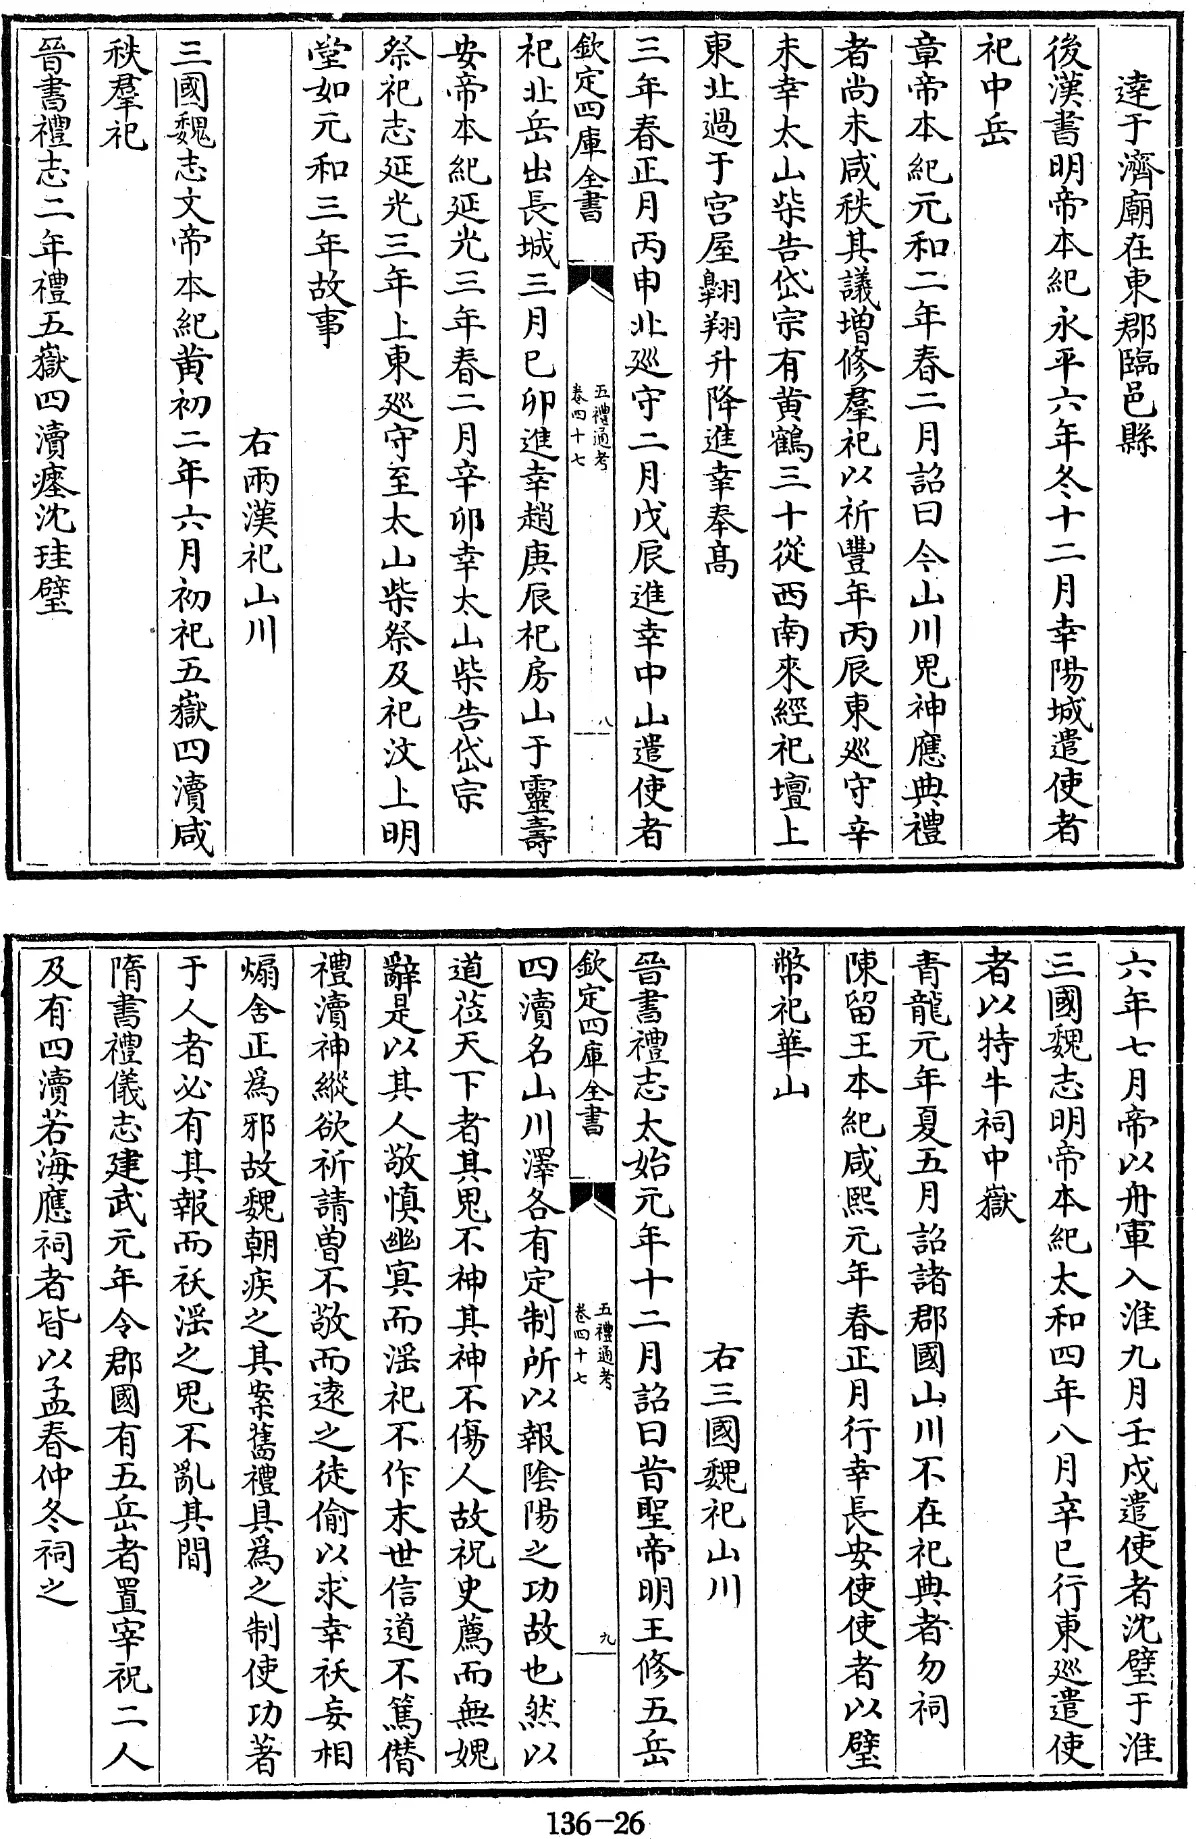 達于濟廟在東郡臨邑縣
後漢書明帝本紀永平六年冬十二月幸陽城遣使者
祀中岳
章帝本紀元和二年春二月詔曰今山川鬼神應典禮
者尚未咸秩其議增修羣祀以祈豐年丙辰東廵守辛
未幸太山柴告岱宗有黄鶴三十從西南來經祀壇上
東北過于宫屋翺翔升降進幸奉髙
三年春正月丙申北廵守二月戊辰進幸中山遣使者
欽定四庫全書
五禮通考
卷四十七
八
祀北岳出長城三月已卯進幸趙庚辰祀房山于靈壽
安帝本紀延光三年春二月辛卯幸太山柴告岱宗
祭祀志延光三年上東廵守至太山柴祭及祀汶上明
堂如元和三年故事
右兩漢祀山川
三國魏志文帝本紀黄初二年六月初祀五嶽四瀆咸
秩羣祀
晉書禮志二年禮五嶽四瀆瘞沈珪璧
六年七月帝以舟軍入淮九月壬戌遣使者沈璧于淮
三國魏志明帝本紀太和四年八月辛巳行東廵遣使
者以特牛祠中嶽
青龍元年夏五月詔諸郡國山川不在祀典者勿祠
陳留王本紀咸熙元年春正月行幸長安使使者以璧
幣祀華山
右三國魏祀山川
晉書禮志太始元年十二月詔曰昔聖帝明王修五岳
欽定四庫全書
五禮通考
卷四十七
九
四瀆名山川澤各有定制所以報隂陽之功故也然以
道莅天下者其鬼不神其神不傷人故祝史薦而無媿
辭是以其人敬慎幽㝠而滛祀不作末世信道不篤僭
禮瀆神縱欲祈請曽不敬而逺之徒偷以求幸祅妄相
煽舍正為邪故魏朝疾之其案舊禮具為之制使功著
于人者必有其報而祅滛之鬼不亂其間
隋書禮儀志建武元年令郡國有五岳者置宰祝二人
及有四瀆若海應祠者皆以孟春仲冬祠之
136-26